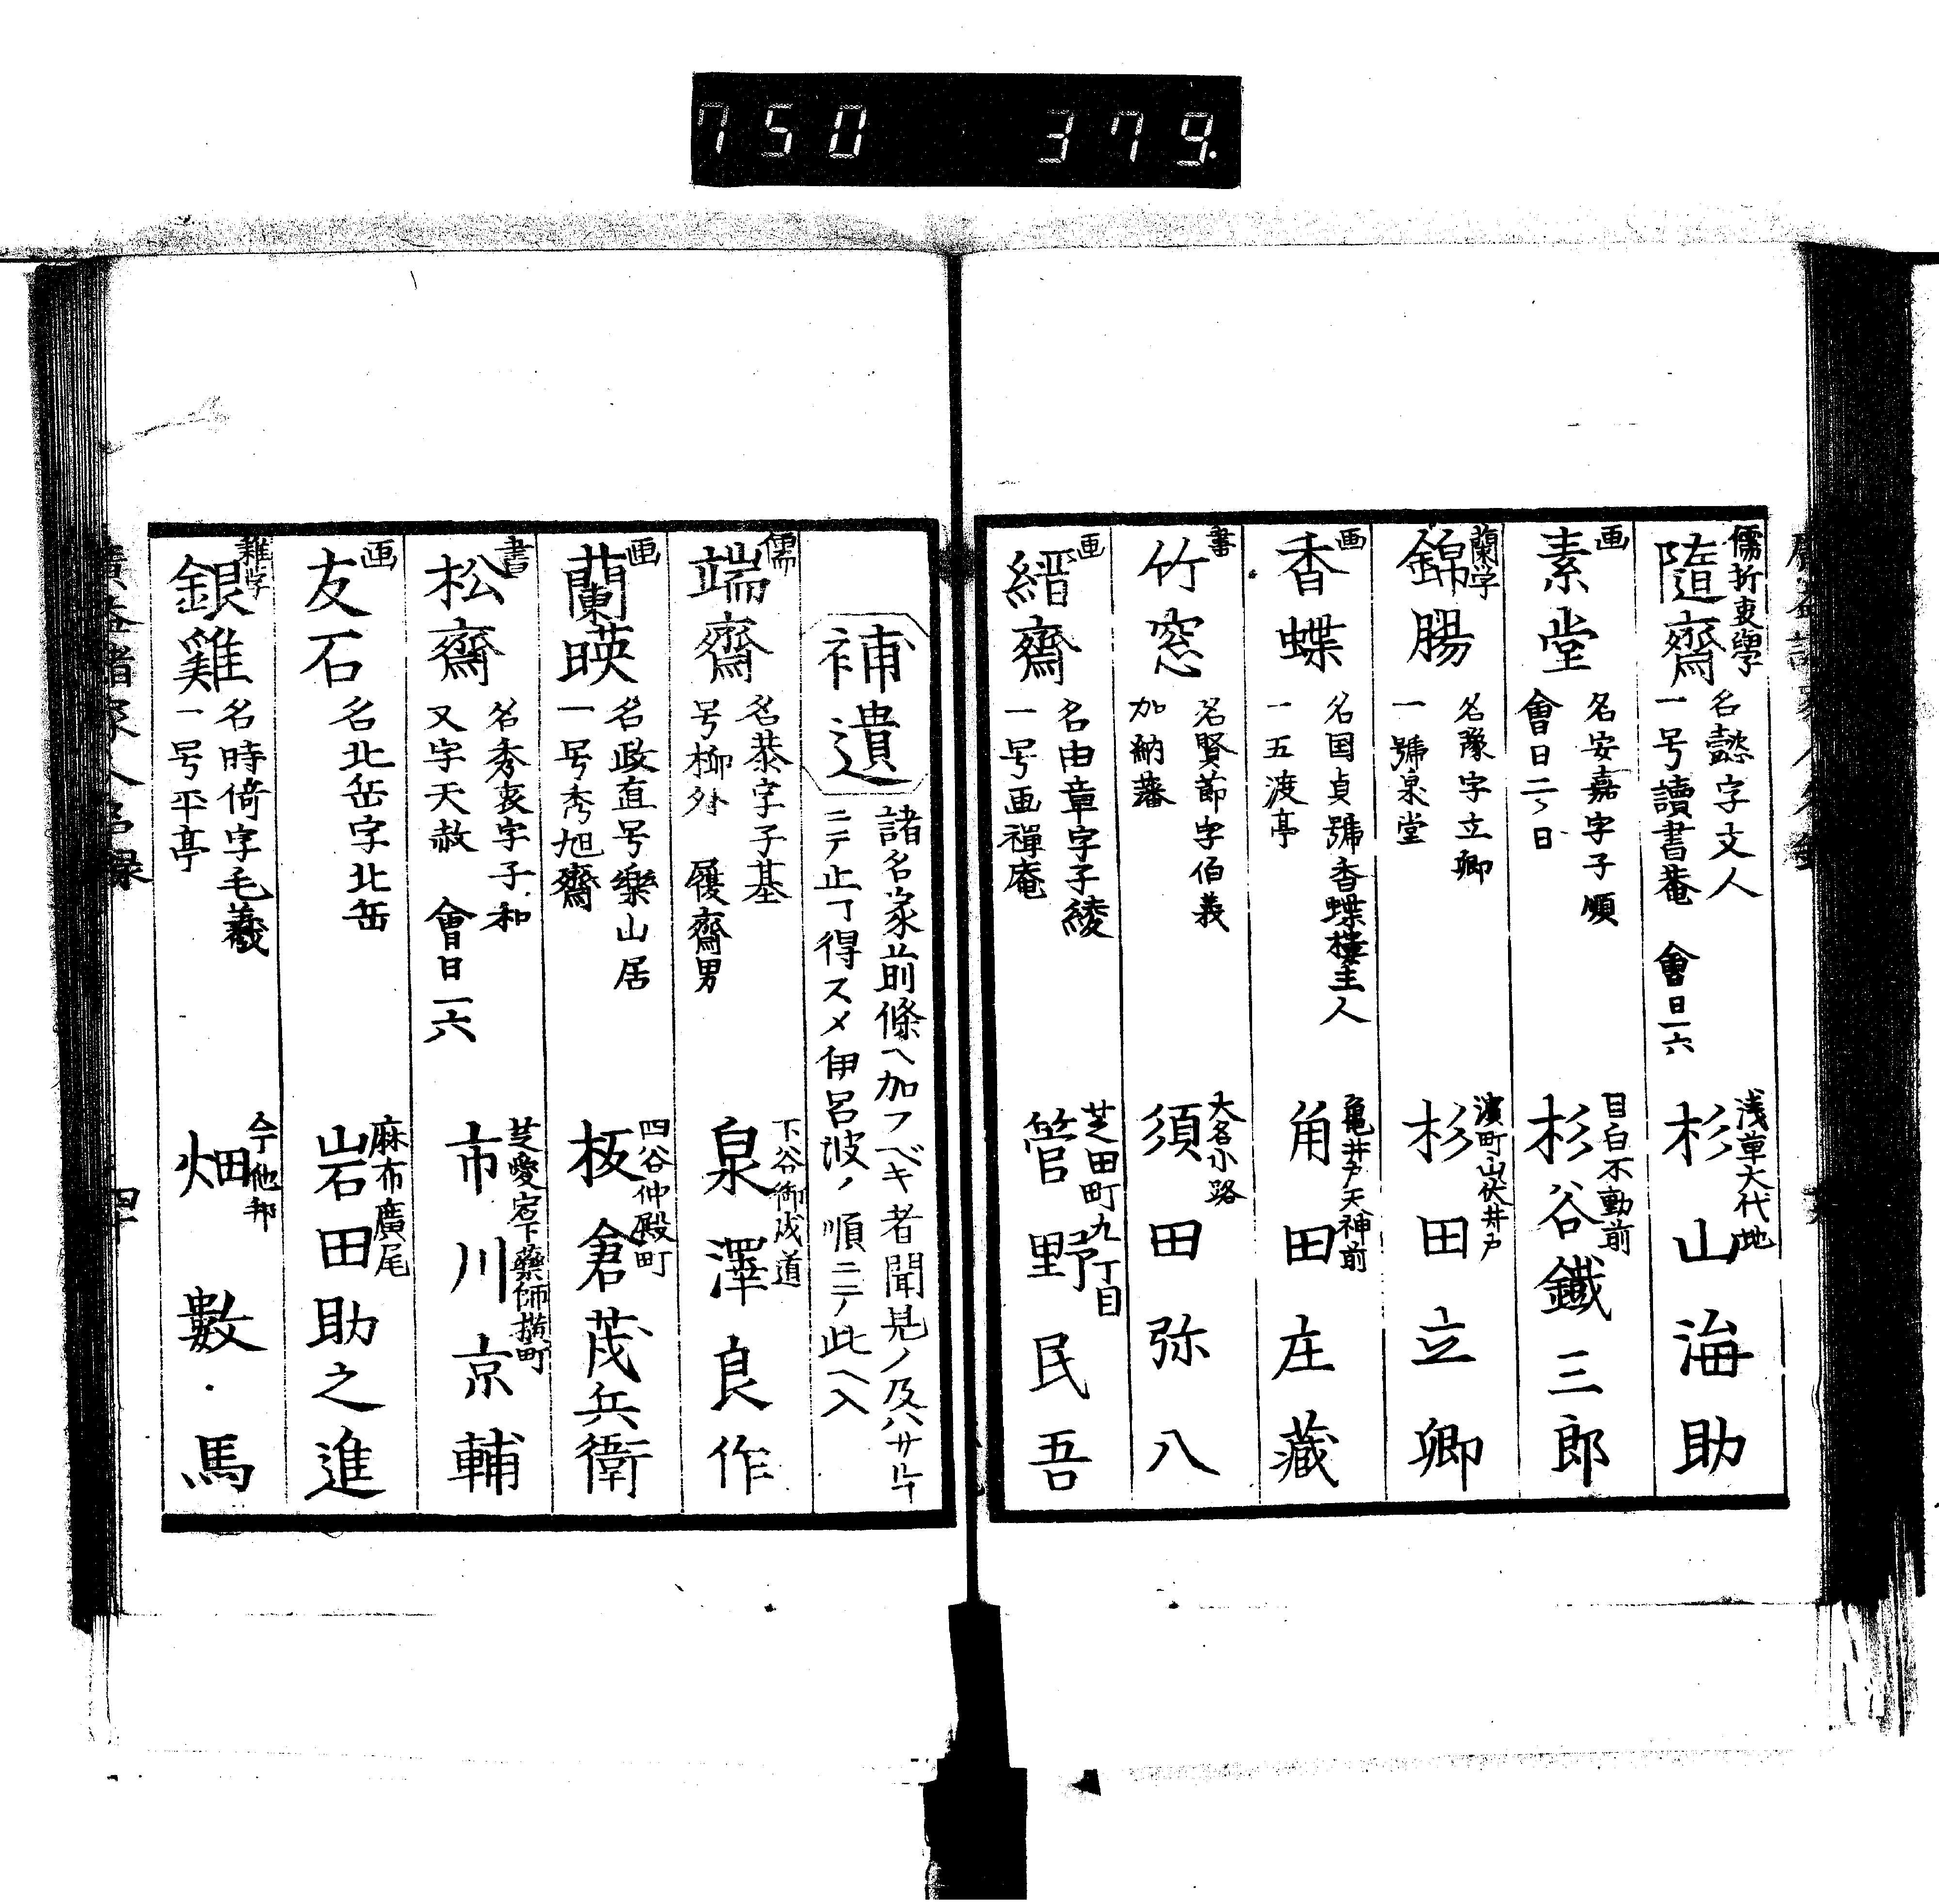 750 379.
儒折衷學
隨齋
名懿字文人
一号讀書菴 會日一六
浅草大代地
杉山海助
画
素堂
名安嘉字子順
會日二ノ日
目白不動前
杉谷鐵三郎
蘭学
錦腸
名豫字立卿
一號泉堂
濱町山伏井戸
杉田立卿
画
香蝶
名国貞號香蝶樓主人
一五渡亭
亀井戸天神前
角田庄藏
書
竹窓
名賢節字伯義
加納藩
大名小路
須田弥八
画
縉齋
名由章字子綾
一号画禪庵
芝田町九丁目
管野民吾
補遺
諸名家前條ヘ加フベキ者聞見ノ及ハサル
ニテ止ヿ得スメ伊呂波ノ順ニテ此ヘ入
儒
端齋
名恭字子基
号柳外 履齋男
下谷御成道
泉澤良作
画
蘭暎
名政直号樂山居
一号秀旭齋
四谷仲殿町
板倉茂兵衛
書
松齋
名秀衷字子和
又字天赦 會日一六
芝愛宕下藥師横町
市川京輔
画
友石
名北岳字北岳
麻布廣尾
岩田助之進
雜学
銀雞
名時倚字毛義
一号平亭
今他邦
畑數馬
四十